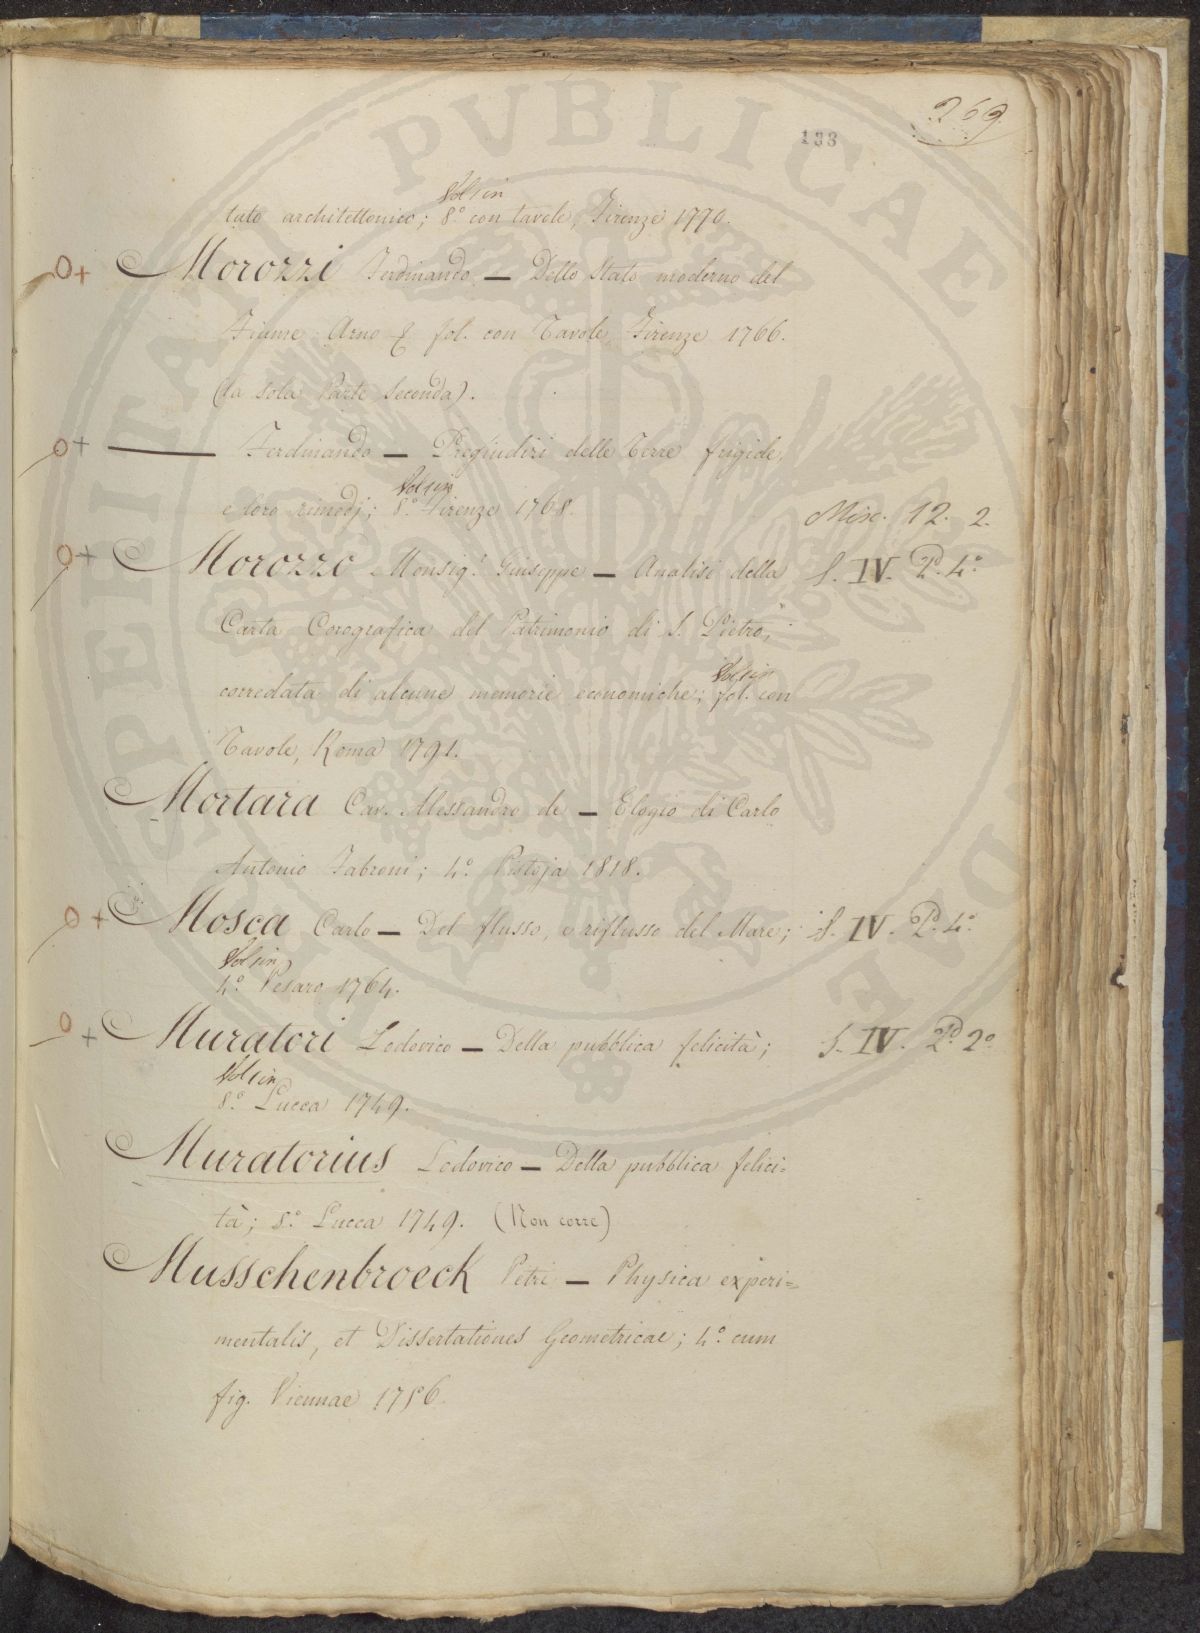 269
133
Vol. in
tuto architettonico; 8.° con tavole, Firenze 1770.
O+ Morozzi Ferdinando — Dello Stato moderno del
Fiume Arno & fol. con Tavole, Firenze 1766.
(la sola Parte Seconda).
O+ —— Ferdinando — Pregiudizi delle Terre frigide,
Vol. in
e loro rimedj; 8.° Firenze 1768. Misc. 12. 2.
O+ Morozzo Monsig.r Giuseppe — Analisi della S. IV. P.d 4.°
Carta Corografica del Patrimonio di S. Pietro,
Vol. in
corredata di alcune memorie economiche; fol. con
Tavole, Roma 1791.
Mortara Cav. Alessandro de — Elogio di Carlo
Antonio Fabroni; 4.° Pistoja 1818.
O+ Mosca Carlo — Del flusso, e riflusso del Mare; S. IV. P.d 4.°
Vol. in
4.° Pesaro 1764.
O+ Muratori Lodovico — Della pubblica felicità; S. IV. P.d 2.°
Vol. in
8.° Lucca 1749.
Muratorius Lodovico — Della pubblica felici=
tà; 8.° Lucca 1749. (Non corre)
Musschenbroeck Petri — Physica experi=
mentalis, et Dissertationes Geometricae; 4.° cum
fig. Viennae 1756.
PERITATI PVBLICAE